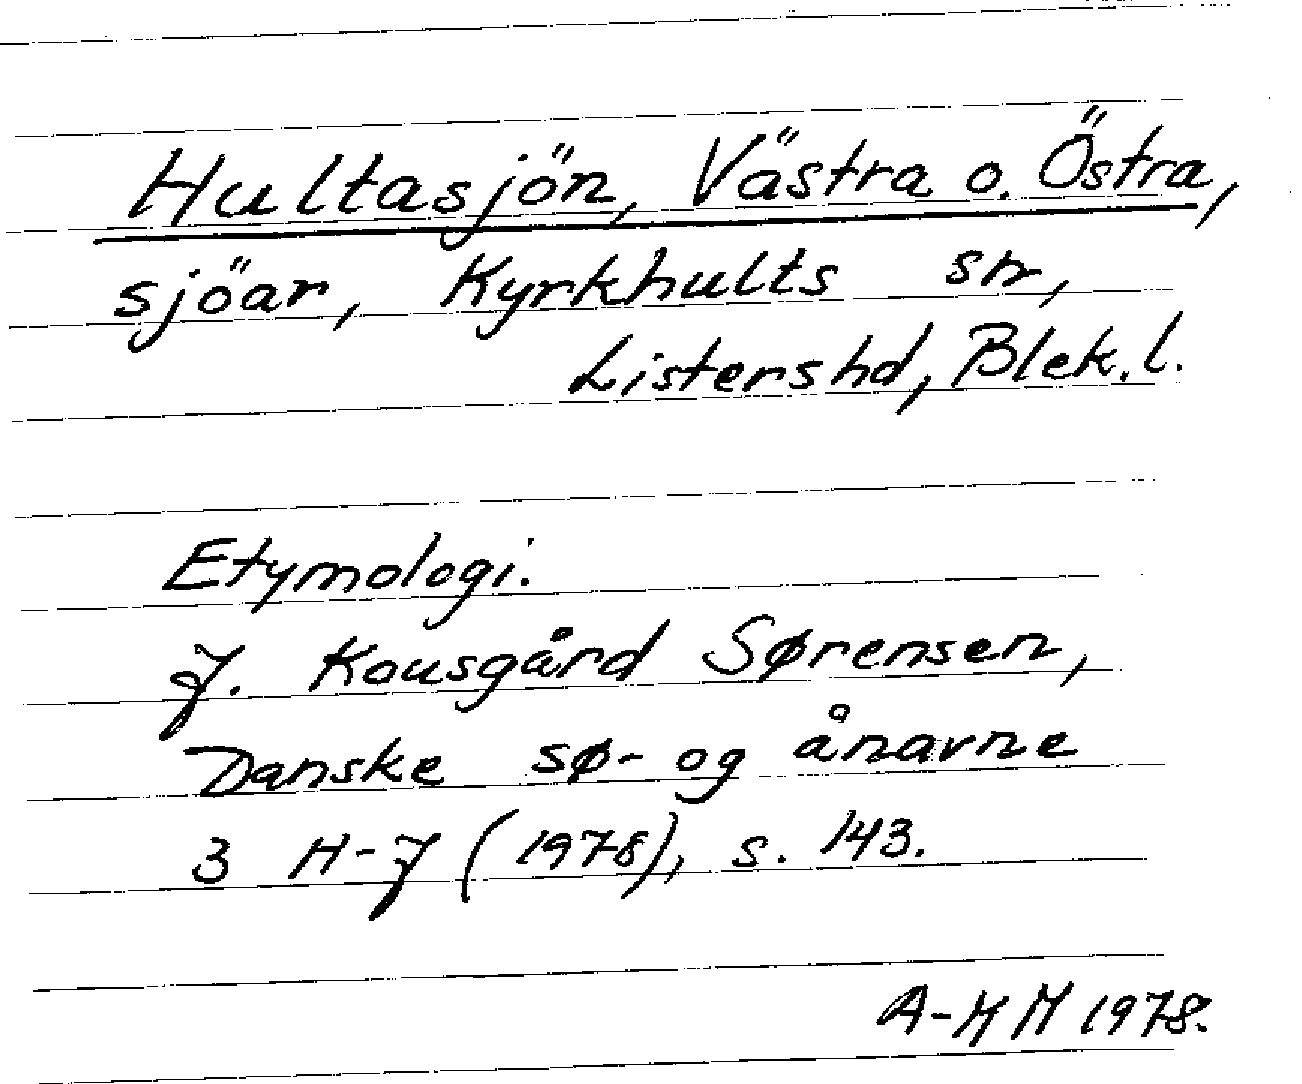 Hultasjön, Västra o. Östra,
sjöar, Kyrkhults sn,
Listers hd, Blek. l.
Etymologi.
J. Kousgård Sørensen,
Danske sø- og ånavne
3 H-J (1978), s. 143.
A-M H 1978.